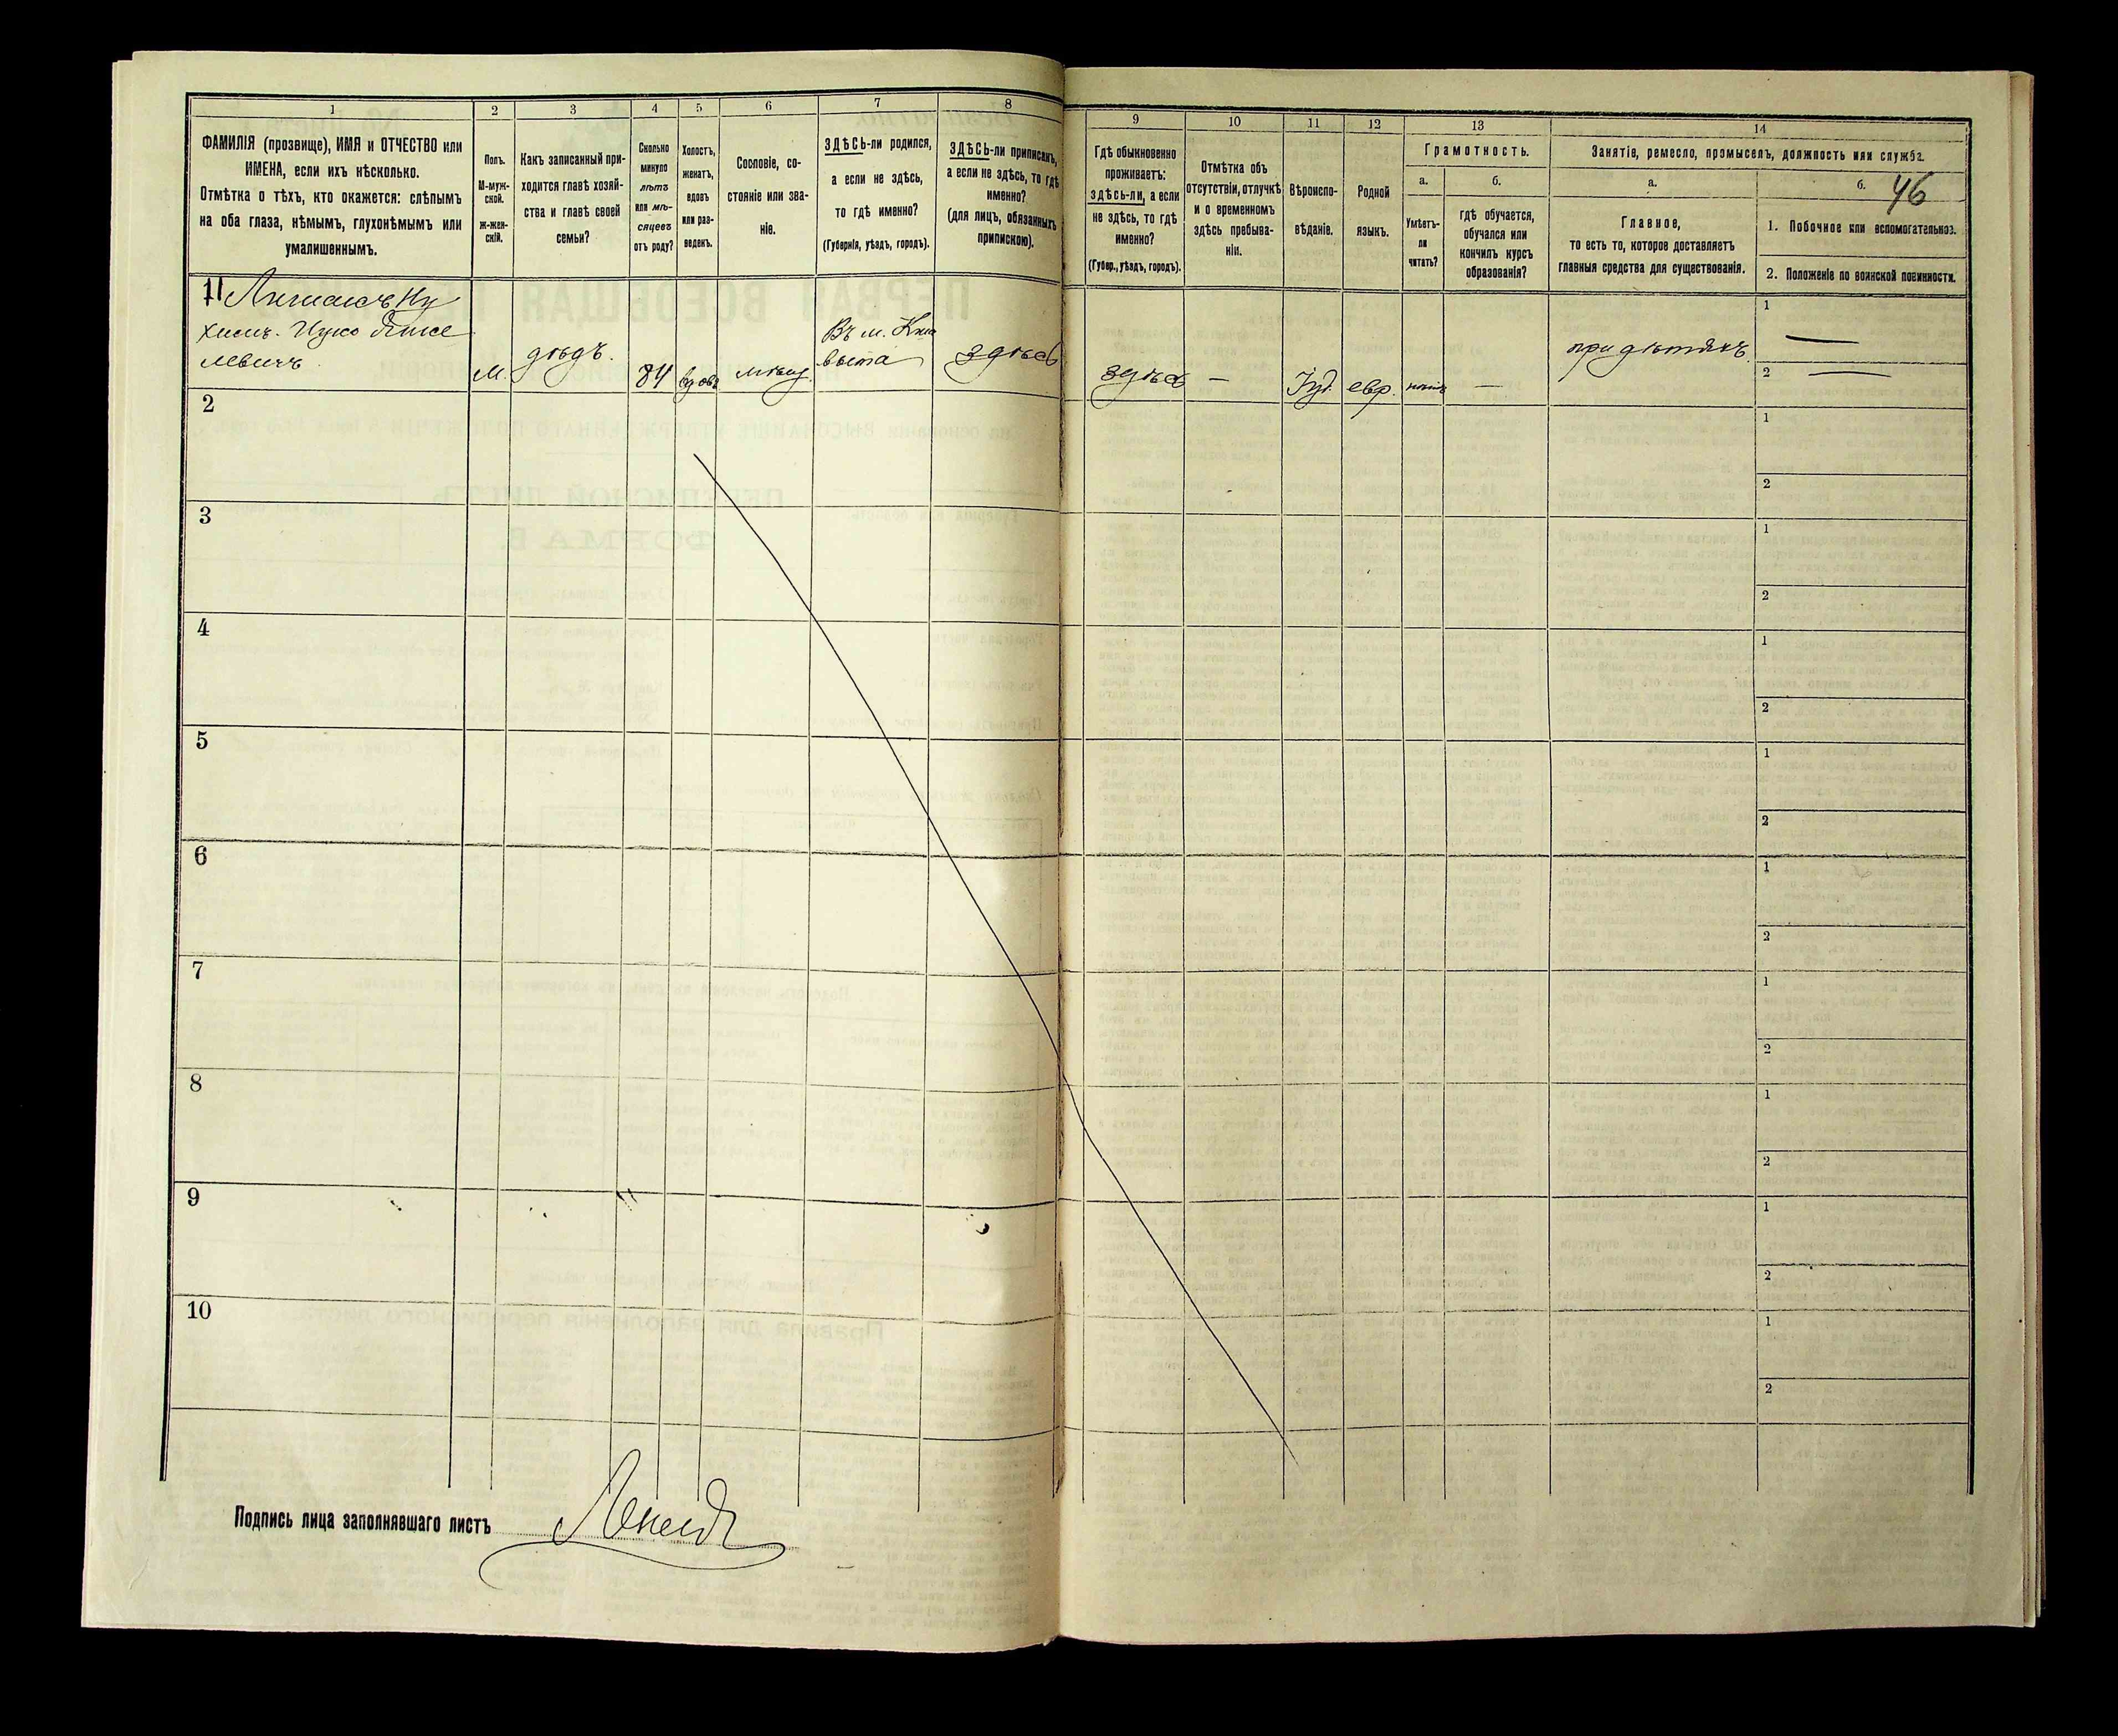 1 2 3 4 5 6 7 8
ФАМИЛІЯ (прозвище), ИМЯ и ОТЧЕСТВО или
ИМЕНА, если ихъ нѣсколько.
Отмѣтка о тѣхъ, кто окажется: слѣпымъ
на оба глаза, нѣмымъ, глухонѣмымъ или
умалишеннымъ.
Полъ.
М-муж-
ской.
Ж-жен-
скій.
Какъ записанный при-
ходится главѣ хозяй-
ства и главѣ своей
семьи?
Сколько
минуло
лѣтъ
или мѣ-
сяцевъ
отъ роду?
Холостъ,
женатъ,
вдовъ
или раз-
веденъ.
Сословіе, со-
стояніе или зва-
ніе.
ЗДѢСЬ-ли родился,
а если не здѣсь,
то гдѣ именно?
(Губернія, уѣздъ, городъ).
ЗДѢСЬ-ли приписанъ,
а если не здѣсь, то гдѣ
именно?
(для лицъ, обязанныхъ
припискою).
9 10 11 12 13 14
Гдѣ обыкновенно
проживаетъ:
ЗДѢСЬ-ли, а если
не здѣсь, то гдѣ
именно?
(Губер., уѣздъ, городъ).
Отмѣтка объ
отсутствіи, отлучкѣ
и о временномъ
здѣсь пребыва-
ніи.
Вѣроиспо-
вѣданіе.
Родной
языкъ.
Грамотность.
а. б.
Умѣетъ-
ли
читать?
гдѣ обучается,
обучался или
кончилъ курсъ
образованія?
Занятіе, ремесло, промыселъ, должность или служба.
а. б.
46
Главное,
то есть то, которое доставляетъ
главныя средства для существованія.
1. Побочное или вспомогательное.
2. Положеніе по воинской повинности.
11
левичъ
М. дѣдъ. 84 вдовъ мѣщ. Въ м. здѣсь
здѣсь — Іуд. евр. — при дѣтяхъ
1 —
2 —
2
1
2
3
1
2
4
1
2
5
1
2
6
1
2
7
1
2
8
1
2
9
1
2
10
1
2
Подпись лица заполнявшаго листъ